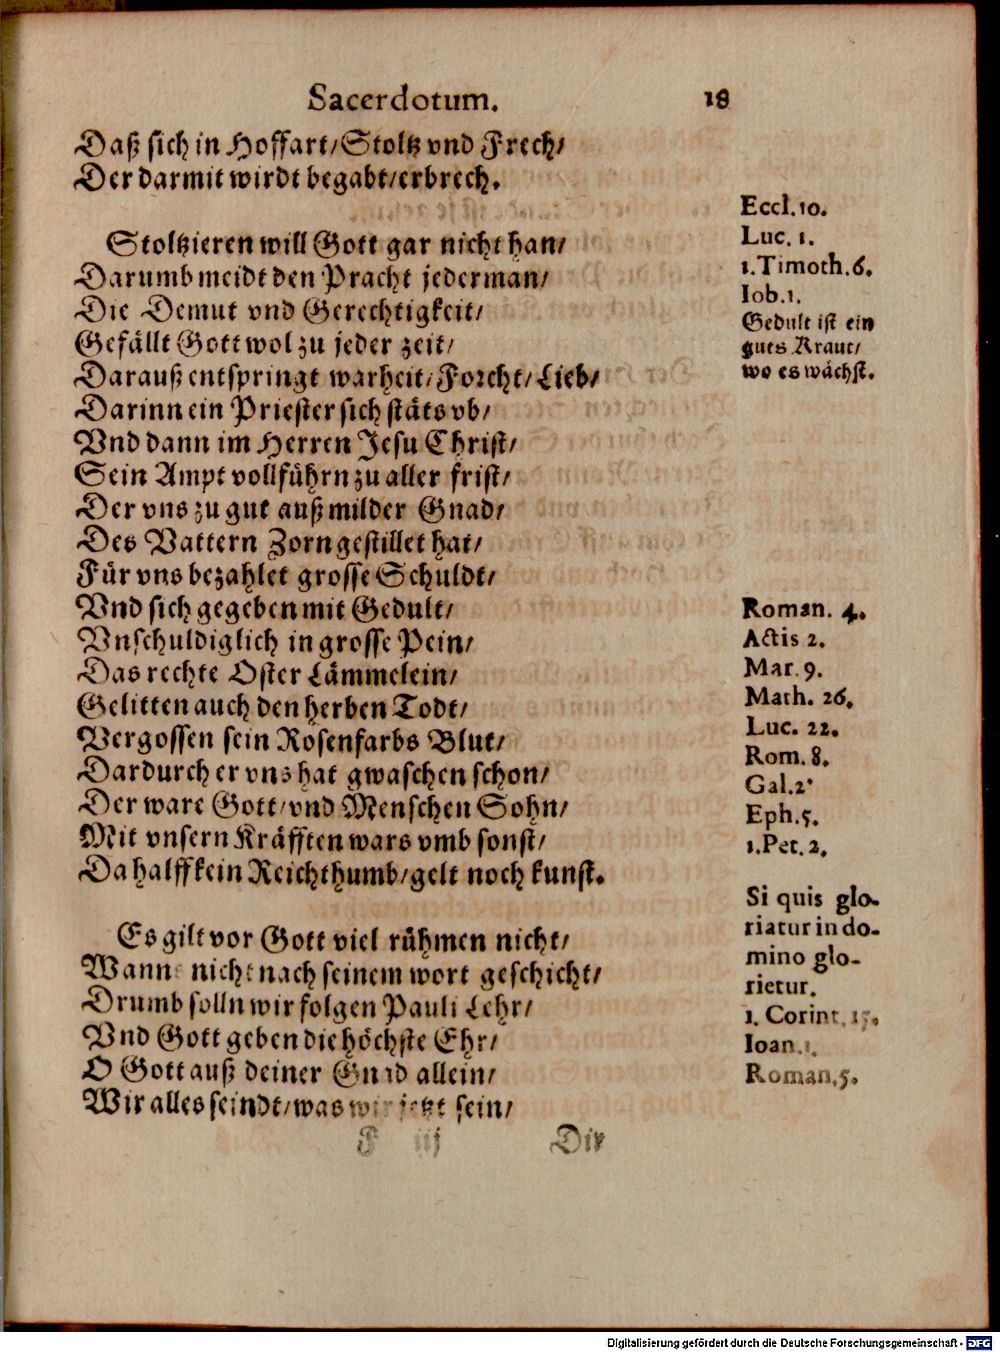 Sacerdotum. 18
Daß sich in Hoffart/Stoltz vnd Frech/
Der darmit wirdt begabt/erbrech.
Stoltzieren will Gott gar nicht han/
Darumb meidt den Pracht jederman/
Die Demut vnd Gerechtigkeit/
Gefällt Gott wol zu jeder zeit/
Darauß entspringt warheit/Forcht/Lieb/
Darinn ein Priester sich stäts vb/
Vnd dann im Herren Jesu Christ/
Sein Ampt vollführn zu aller frist/
Der vns zu gut auß milder Gnad/
Des Vattern Zorn gestillet hat/
Für vns bezahlet grosse Schuldt/
Vnd sich gegeben mit Gedult/
Vnschuldiglich in grosse Pein/
Das rechte Oster Lämmelein/
Gelitten auch den herben Todt/
Vergossen sein Rosenfarbs Blut/
Dardurch er vns hat gwaschen schon/
Der ware Gott/vnd Menschen Sohn/
Mit vnsern Kräfften wars vmb sonst/
Da halff kein Reichthumb/gelt noch kunst.
Es gilt vor Gott viel rühmen nicht/
Wanns nicht nach seinem wort geschicht/
Drumb solln wir folgen Pauli Lehr/
Vnd Gott geben die höchste Ehr/
O Gott auß deiner Gnad allein/
Wir alles seindt/was wir jetzt sein/
F iij Dir
Eccl. 10.
Luc. 1.
1. Timoth. 6.
Iob. 1.
Gedult ist ein
guts Kraut/
wo es wächst.
Roman. 4.
Actis 2.
Mar. 9.
Math. 26.
Luc. 22.
Rom. 8.
Gal. 2.
Eph. 5.
1. Pet. 2.
Si quis glo-
riatur in do-
mino glo-
rietur.
1. Corint.
Ioan. 1.
Roman. 5.
Digitalisierung gefördert durch die Deutsche Forschungsgemeinschaft - DFG